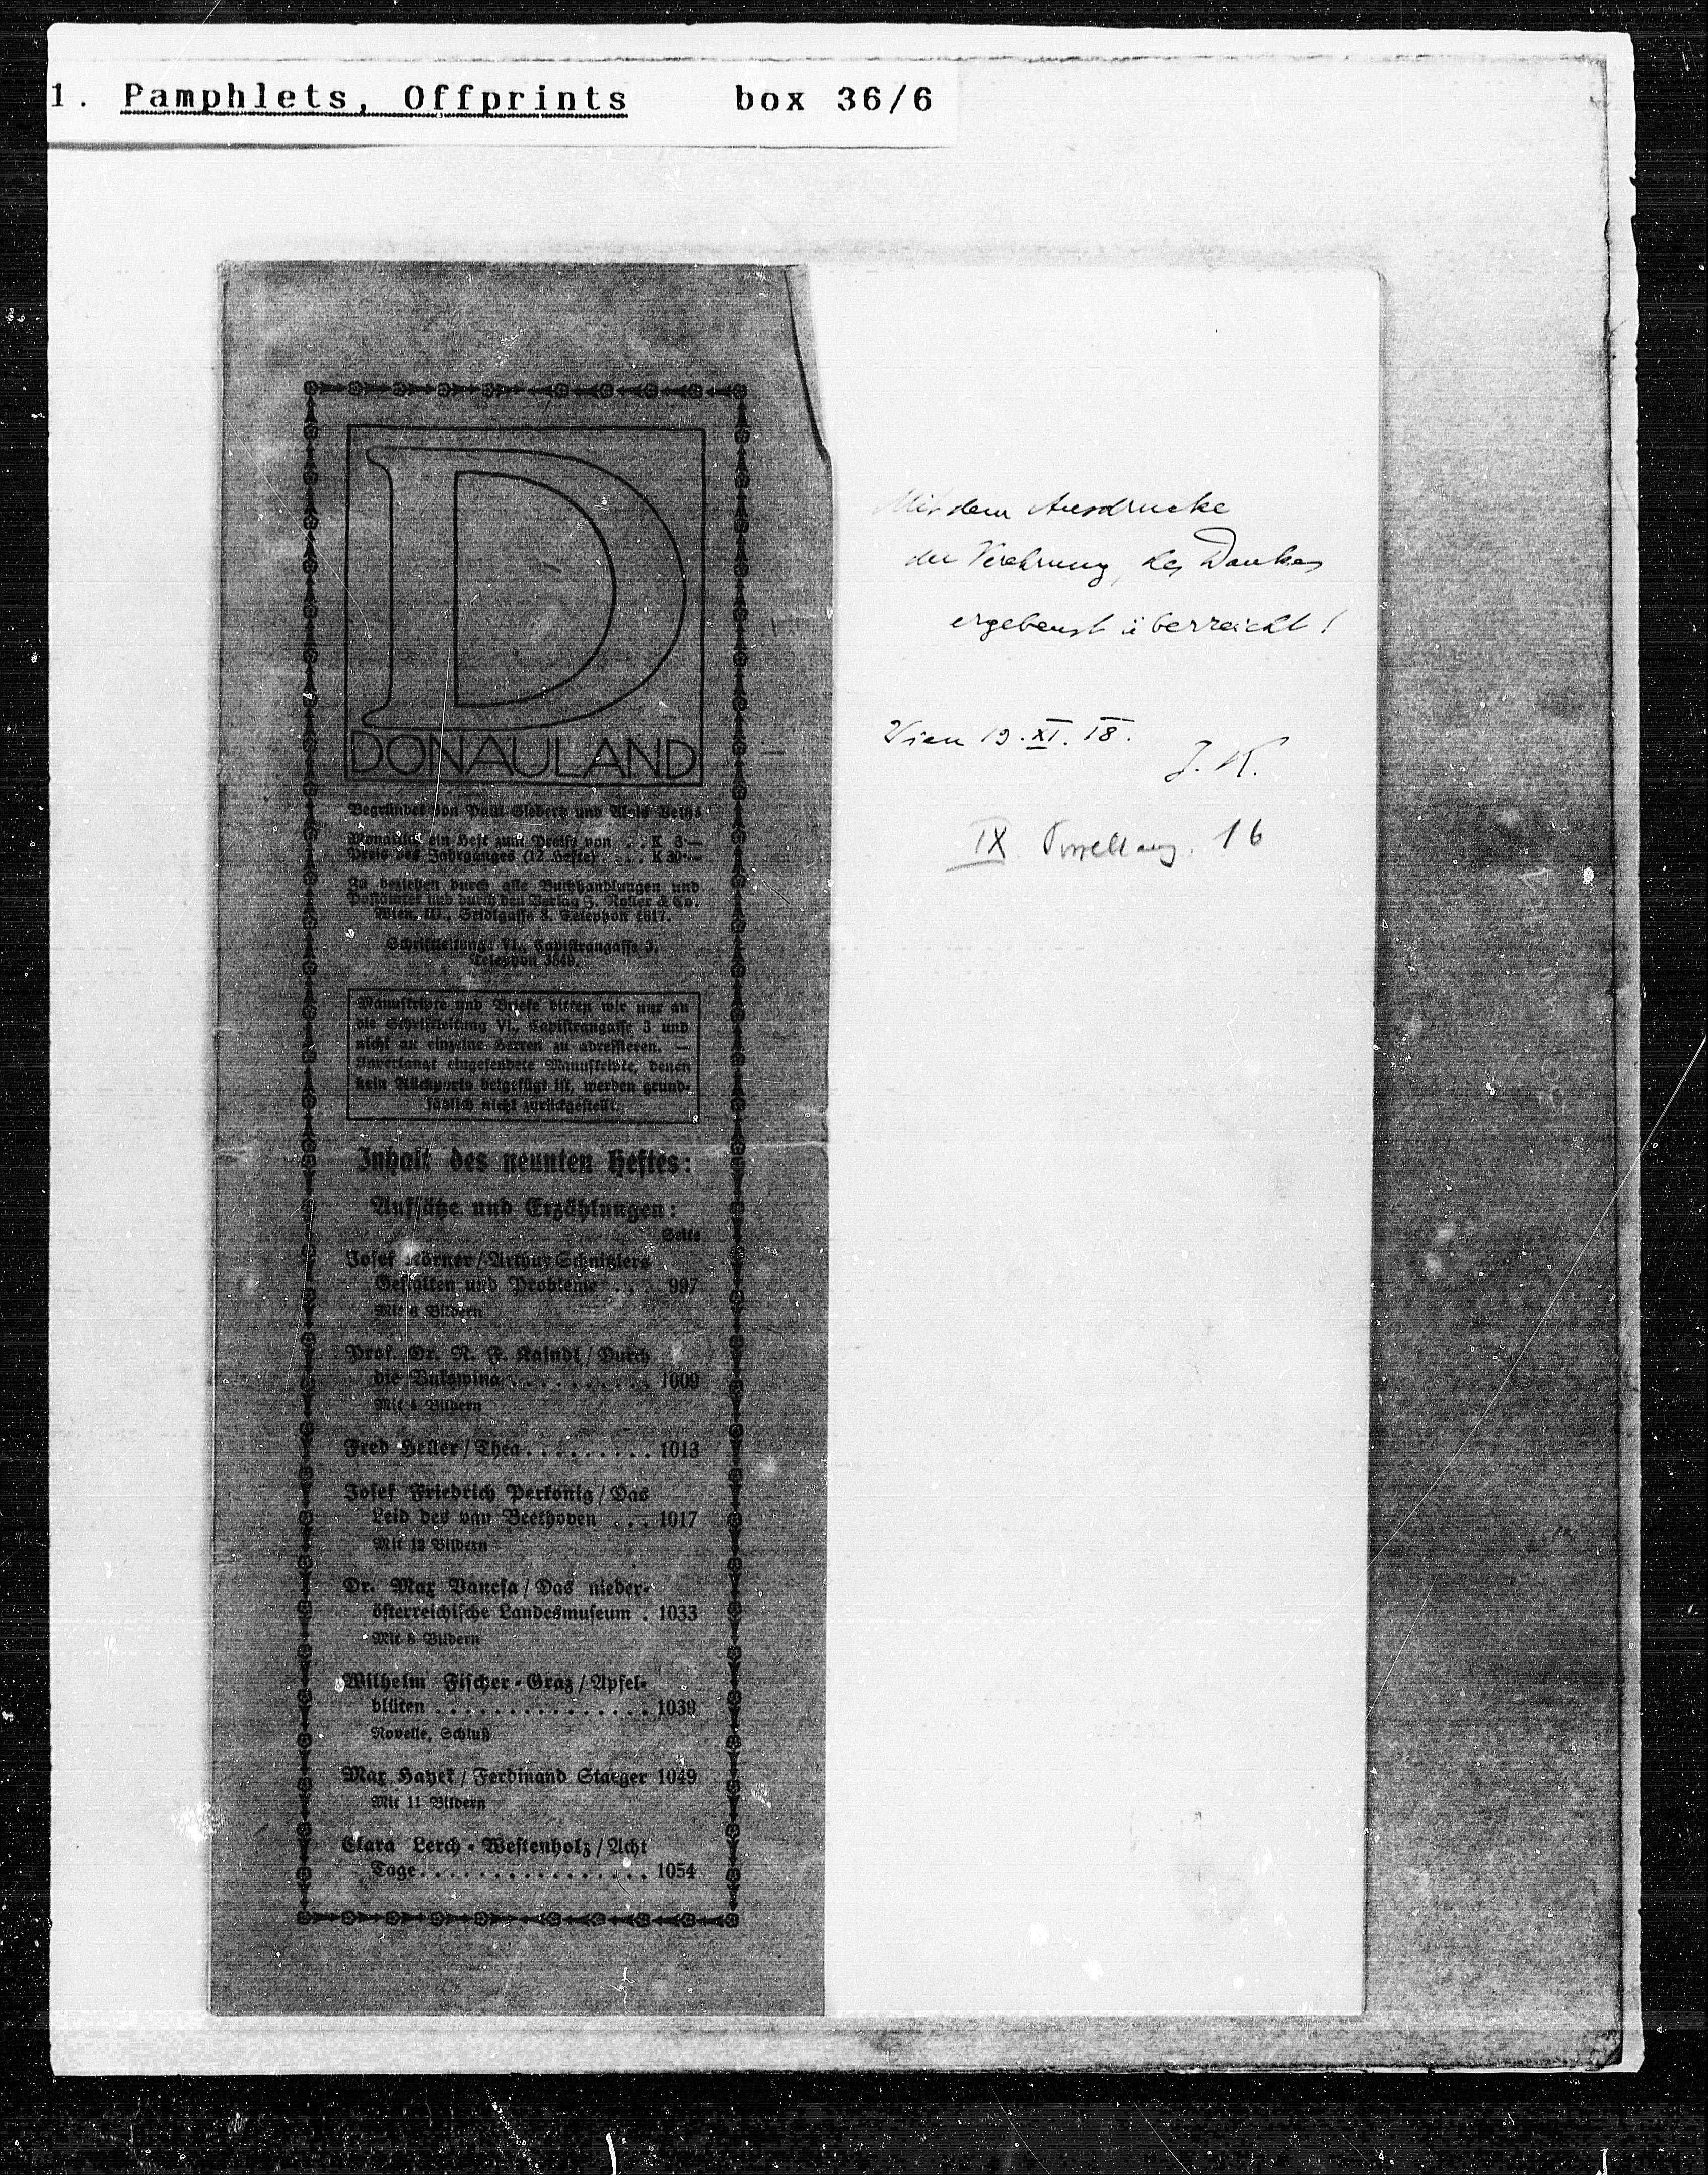 1. Pamphlets, Offprints box 36/6
DONAULAND
Begründet von Paul Siebertz und Alois Veltzé
Monatlich ein Heft zum Preise von . . K 3·—
Preis des Jahrganges (12 Hefte) . . . . K 30·—
Zu beziehen durch alle Buchhandlungen und
Postämter und durch den Verlag J. Roller & Co.
Wien, III., Seidlgasse 8. Telephon 4617.
Schriftleitung: VI., Capistrangasse 3.
Telephon 3549.
Manuskripte und Briefe bitten wir nur an
die Schriftleitung VI., Capistrangasse 3 und
nicht an einzelne Herren zu adressieren. —
Unverlangt eingesendete Manuskripte, denen
kein Rückporto beigefügt ist, werden grund-
sätzlich nicht zurückgestellt.
Inhalt des neunten Heftes:
Aufsätze und Erzählungen:
Seite
Josef Körner / Arthur Schnitzlers
Gestalten und Probleme . . . 997
Mit 6 Bildern
Prof. Dr. R. F. Kaindl / Durch
die Bukowina . . . . . . . . . . 1009
Mit 4 Bildern
Fred Heller / Thea . . . . . . . . . 1013
Josef Friedrich Perkonig / Das
Leid des van Beethoven . . . 1017
Mit 12 Bildern
Dr. Max Vancsa / Das nieder-
österreichische Landesmuseum . 1033
Mit 8 Bildern
Wilhelm Fischer-Graz / Apfel-
blüten . . . . . . . . . . . . . . . 1039
Novelle, Schluß
Max Hayek / Ferdinand Staeger 1049
Mit 11 Bildern
Clara Lerch-Westenholz / Acht
Tage . . . . . . . . . . . . . . . . 1054
Mit dem Ausdrucke
der Verehrung, des Dankes
ergebenst überreicht!
Wien 19. XI. 18.
J. K.
IX. 16